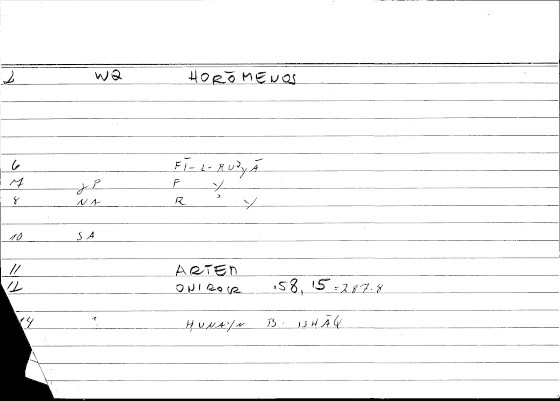 2 WQ HORŌMENOS
6 FĪ-L-RUʾYĀ
7 gP F Y
8 NN R ʾ Y
10 SA
11 ARTEM
12 ONIROCR 158, 15 = 287.8
14 " ḤUNAYN B. ISḤĀQ